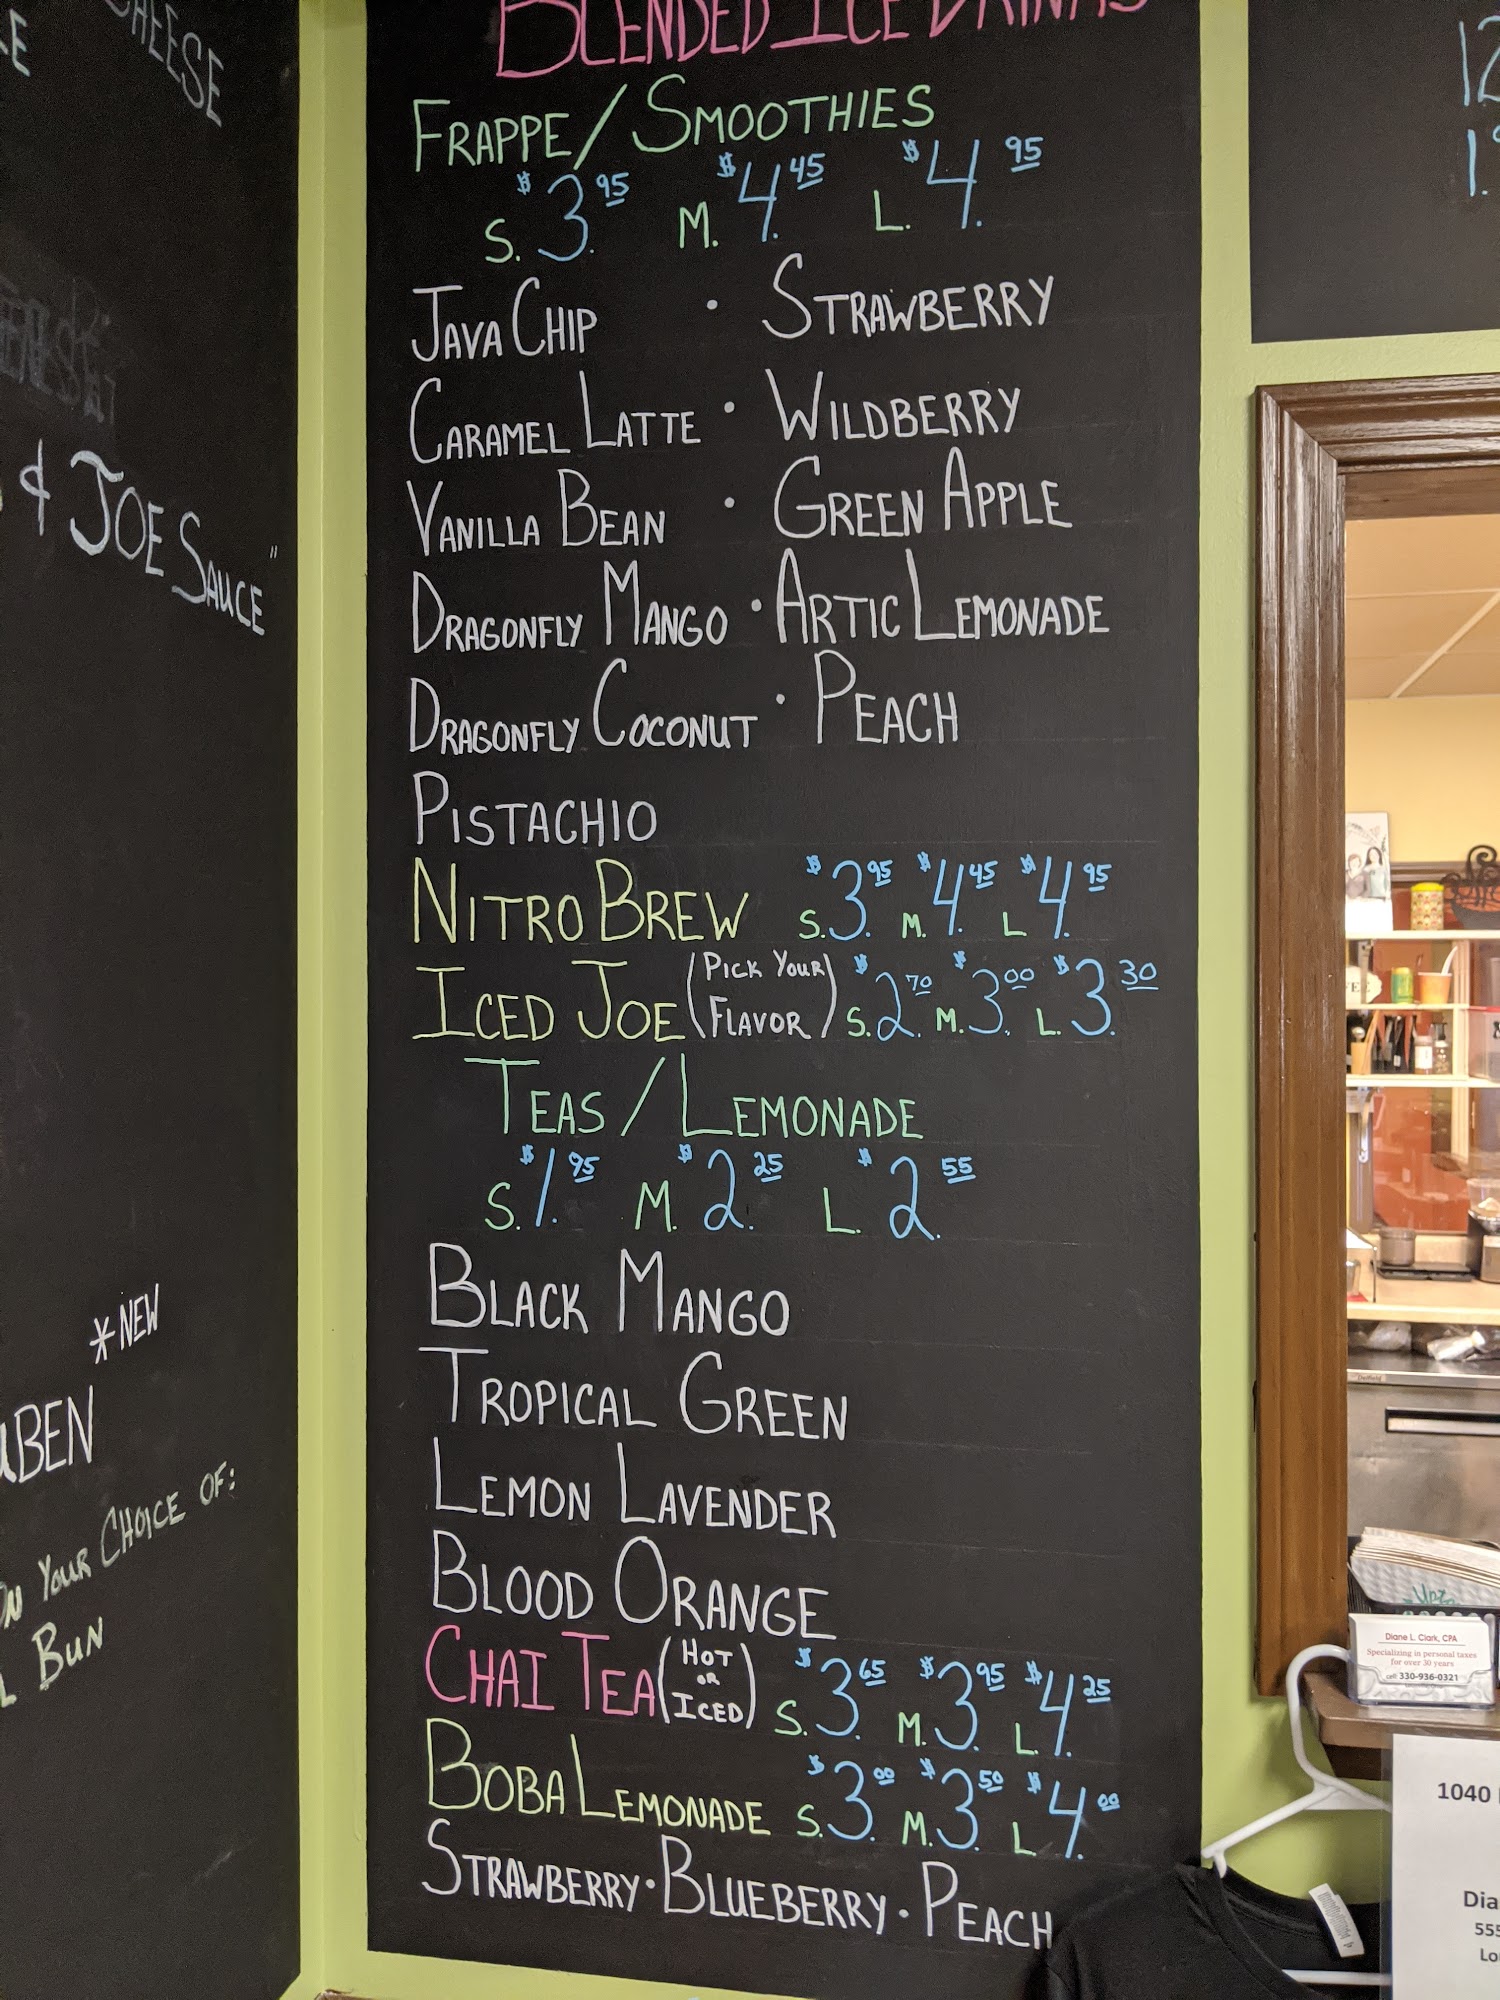 CHEESE
& JOE SAUCE"
*NEW
BEN
YOUR CHOICE OF:
BUN
BLENDED ICE DRINKS
FRAPPE/SMOOTHIES
S. $3.95 M. $4.45 L. $4.95
JAVA CHIP · STRAWBERRY
CARAMEL LATTE · WILDBERRY
VANILLA BEAN · GREEN APPLE
DRAGONFLY MANGO · ARTIC LEMONADE
DRAGONFLY COCONUT · PEACH
PISTACHIO
NITRO BREW S. $3.95 M. $4.45 L $4.95
ICED JOE (PICK YOUR FLAVOR) S. $2.70 M. $3.00 L. $3.30
TEAS/LEMONADE
S. $1.95 M. $2.25 L. $2.55
BLACK MANGO
TROPICAL GREEN
LEMON LAVENDER
BLOOD ORANGE
CHAI TEA (HOT OR ICED) S. $3.65 M. $3.95 L. $4.25
BOBA LEMONADE S. $3.00 M. $3.50 L $4.00
STRAWBERRY · BLUEBERRY · PEACH
Diane L. Clark, CPA
Specializing in personal taxes
for over 30 years
cell 330-936-0321
1040
Dia
555
Lo